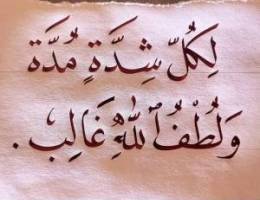 لِكُلِّ شِدَّةٍ مُدَّة
وَلُطْفُ ٱللَّٰهِ غَالِب.